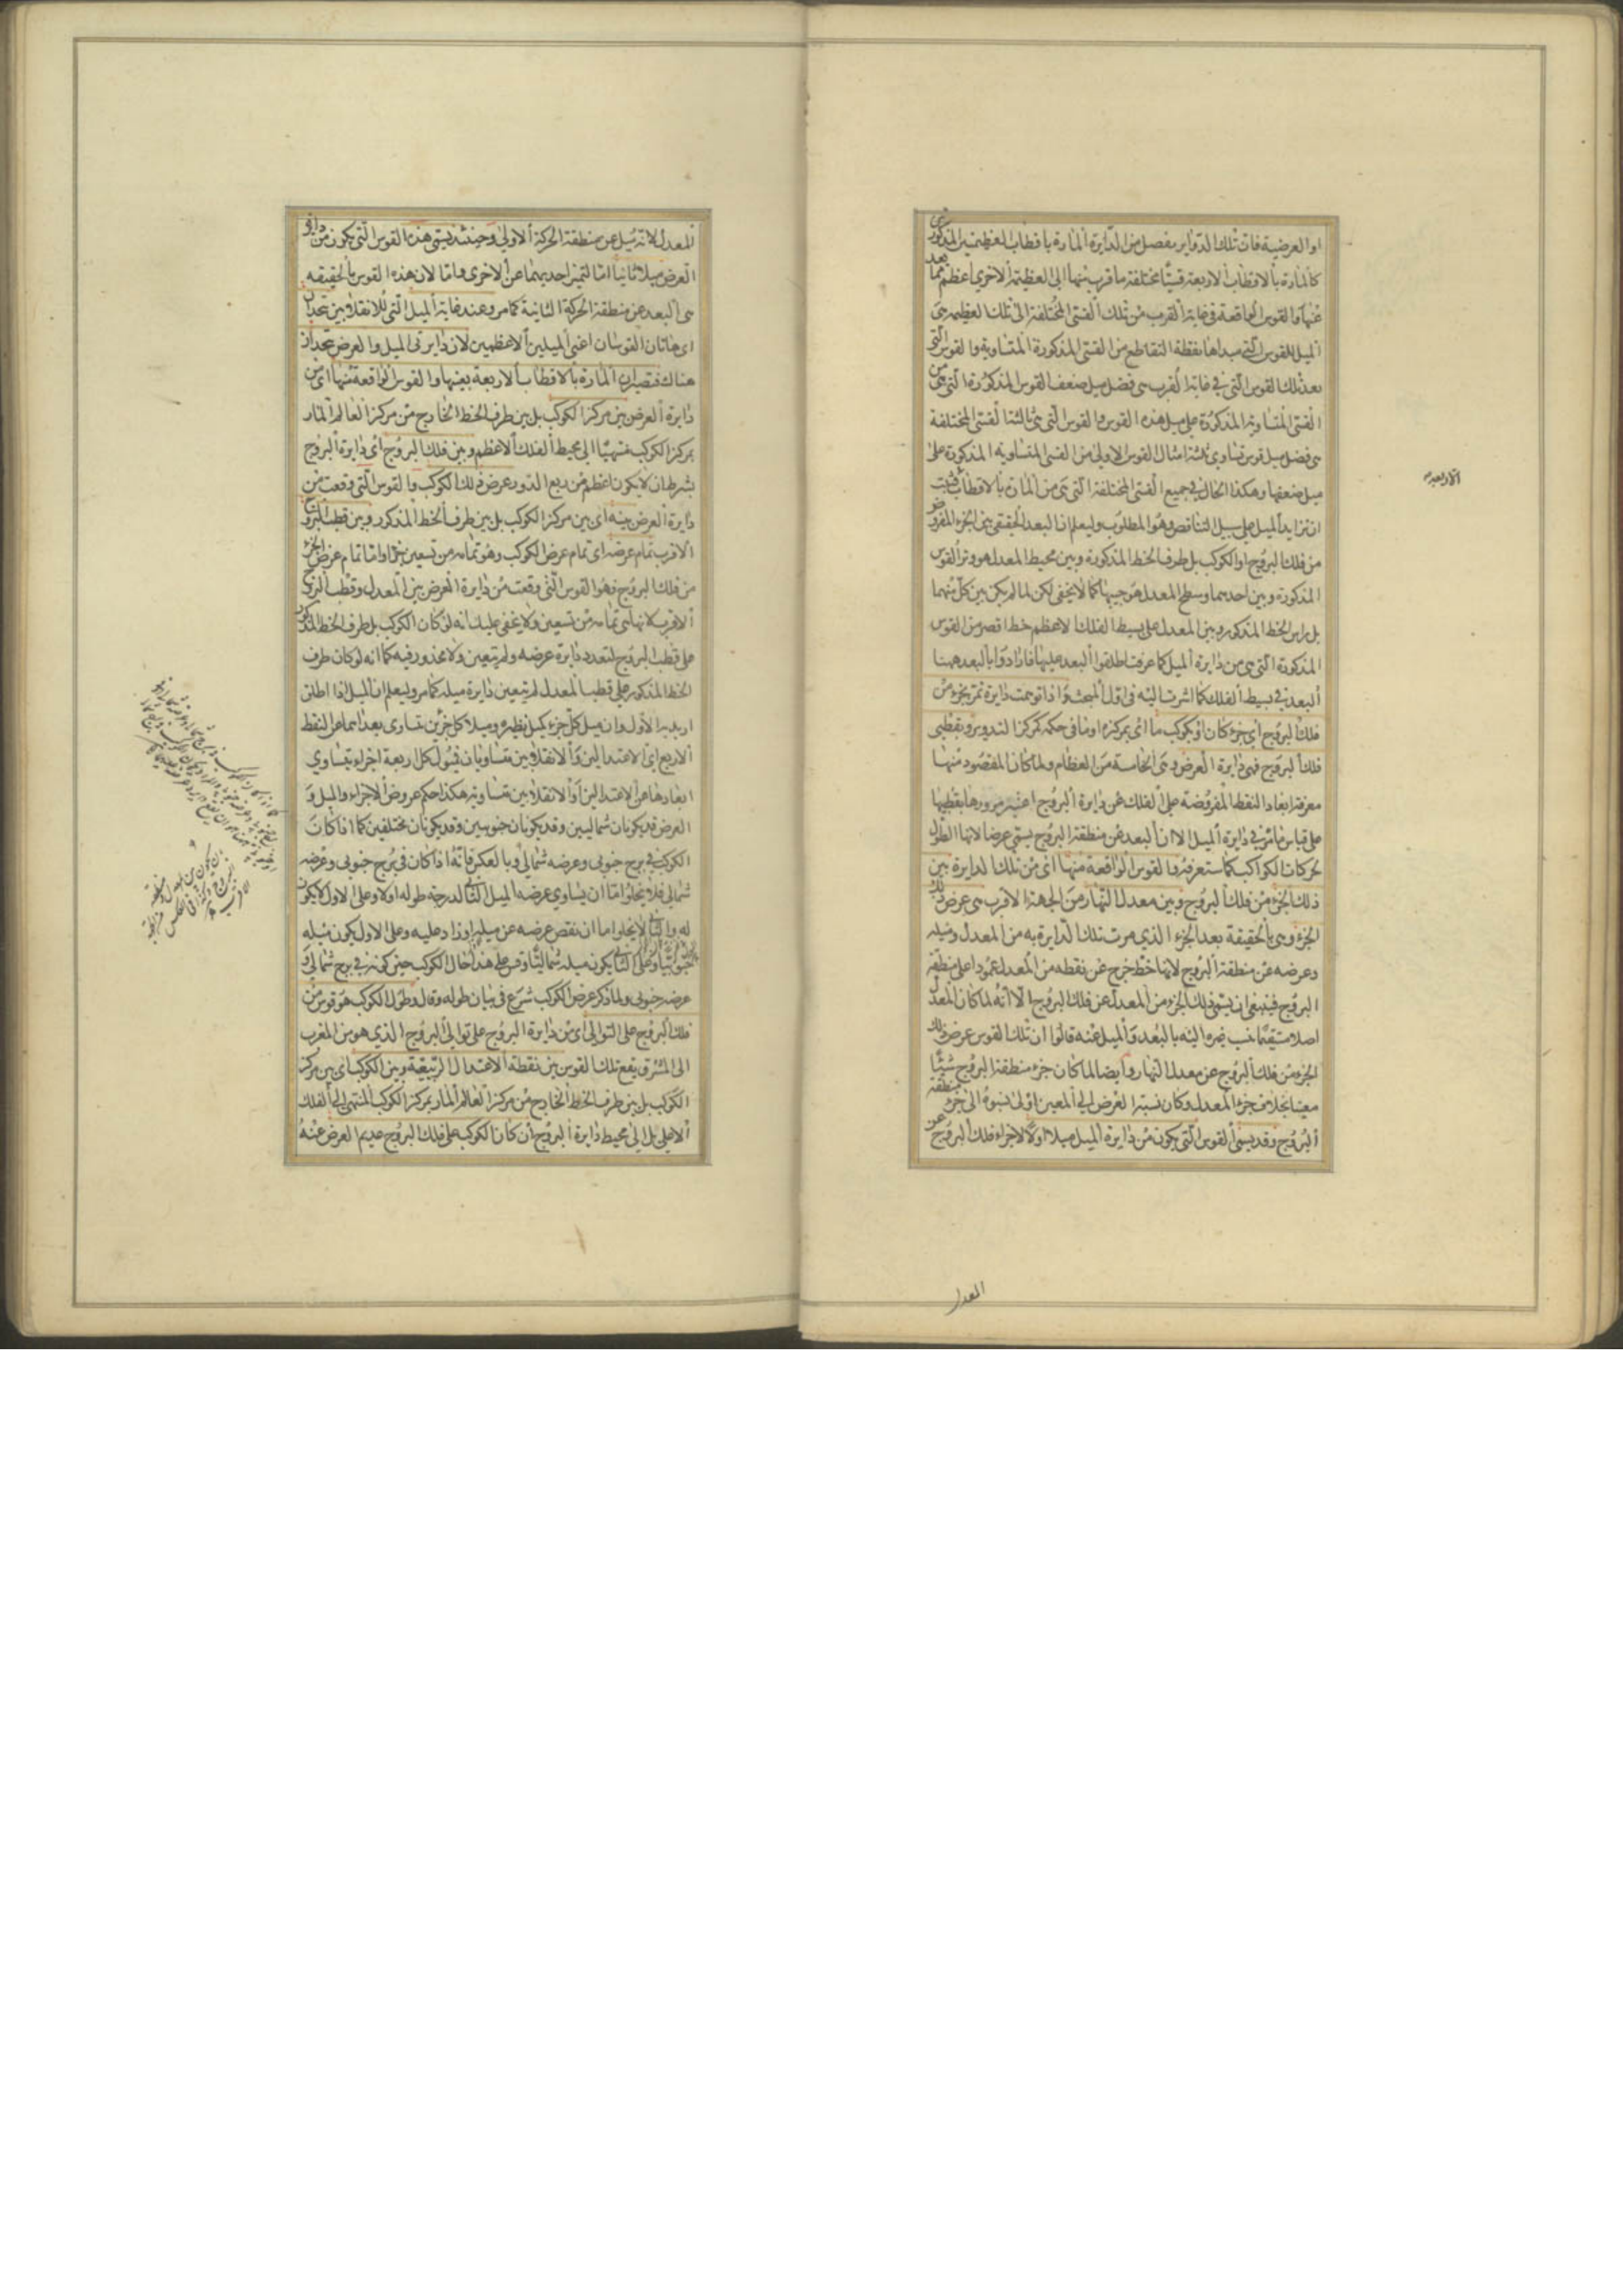 او العرضية فان تلك الدوایر یفصل من الدایرة المارة باقطاب العظیمتین المذکورتین
کالمارة بالاقطاب الاربعة قسیّا مختلفة ما قرب منها الی العظیمة الاخری اعظم مما بعد
عنها والقوس الواقعة فی غایة القرب من تلک القسی المختلفة الی تلک العظیمة هی
المیل للقوس التی مبداها نقطة التقاطع من القسی المذکورة المتساویة والقوس التی
بعد تلک القوس التی فی غایة القرب هی فضل میل ضعف القوس المذکورة التی هی من
القسی المتساویة المذکورة علی میل هذه القوس والقوس التی هی ثالثة القسی المختلفة
هی فضل میل قوس تساوی ثلثة امثال القوس الاولی من القسی المتساویة المذکورة علی
میل ضعفها وهکذا الحال فی جمیع القسی المختلفة التی هی من المارة بالاقطاب فثبت
ان تزاید المیل علی سبیل التناقص وهو المطلوب ولیعلم ان البعد الحقیقی بین الجزء المفروض
من فلك البروج او الکوکب بل طرف الخط المذکورة وبین محیط المعدل هو وتر القوس
المذکورة وبین احدهما وسطح المعدل هو جیبها کما لا یخفی لکن لما لم یکن بین کل منهما
بل راس الخط المذکور وبین المعدل علی بسیط الفلک الاعظم خط اقصر من القوس
المذکورة التی هی من دایرة المیل کما عرفت اطلقوا البعد علیها فارادوا بالبعد ههنا
البعد فی بسیط الفلك کما اشرت الیه فی اول المبحث واذا توهمت دایرة تمر بجزء من
فلك البروج ای جزء کان او بکوکب ما ای بمرکزه او ما فی حکمه کمرکز التدویر وبقطبی
فلك البروج فهی دایرة العرض وهی الخامسة من العظام ولما کان المقصود منها
معرفة ابعاد النقط المفروضة علی الفلك عن دایرة البروج اعتبر مرورها بقطبیها
علی قیاس ما مر فی دایرة المیل الا ان البعد عن منطقة البروج یسمی عرضا لانها الطول
لحرکات الکواکب کما ستعرفه والقوس الواقعة منها ای من تلك الدایرة بین
ذلك الجزء من فلك البروج وبین معدل النهار من الجهة الاقرب هی عرض ذلك
الجزء وهی بالحقیقة بعد الجزء الذی مرت تلك الدایرة به من المعدل ومیله
وعرضه عن منطقة البروج لانها خط خرج عن نقطة من المعدل عمودا علی منطقة
البروج فینبغی ان یسمی ذلك الجزء من المعدل عن فلك البروج الا انه لما کان المعدل
اصلا نسب غیره الیه بالبعد والمیل عنه قالوا ان تلك القوس عرض ذلك
الجزء من فلك البروج عن معدل النهار وایضا لما کان جزء منطقة البروج شیئا
معینا بخلاف جزء المعدل وکان نسبة العرض الی المعین اولی نسبوه الی جزء منطقة
البروج وقد یسمی القوس التی یکون من دایرة المیل میلا اولا لاجزاء فلك البروج عن
الاربعة
المعدل
المعدل لانه میل عن منطقة الحرکة الاولی وحینئذ یسمی هذه القوس التی یکون من دایرة
العرض میلا ثانیا اما لتمیز احدیهما عن الاخری واما لان هذه القوس بالحقیقة
هی البعد عن منطقة الحرکة الثانیة کما مر وعند غایة المیل التی للانقلابین یتحدان
ای هاتان القوسان اعنی المیلین الاعظمین لان دایرتی المیل والعرض یتحدان
هناك فتصیران المارة بالاقطاب الاربعة بعینها والقوس الواقعة منها ای من
دایرة العرض بین مرکز الکوکب بل بین طرف الخط الخارج من مرکز العالم المار
بمرکز الکوکب منتهیا الی محیط الفلك الاعظم وبین فلك البروج ای دایرة البروج
بشرط ان لا یکون اعظم من ربع الدور عرض ذلك الکوکب والقوس التی وقعت من
دایرة العرض بینه ای بین مرکز الکوکب بل بین طرف الخط المذکور وبین قطب البروج
الاقرب تمام عرضه ای تمام عرض الکوکب وهو تمامه من تسعین جزءا واما تمام عرض الجزء
من فلك البروج فهو القوس التی وقعت من دایرة العرض بین المعدل وقطب البروج
الاقرب لانها هی تمامه من تسعین ولا یخفی علیك انه لو کان الکوکب بل طرف الخط المذکور
علی قطب البروج لتعدد دایرة عرضه ولم یتعین ولا محذور فیه کما انه لو کان طرف
الخط المذکور علی قطب المعدل لم یتعین دایرة میله کما مر ولیعلم ان المیل اذا اطلق
ارید به الاول وان میل کل جزء کمیل نظیره ومیلا کل جزئین تساوی بعداهما عن النقط
الاربع ای الاعتدالین والانقلابین متساویان فیتول کل اربعة اجزاء یتساوی
ابعادها عن الاعتدالین او الانقلابین متساویة هکذا حکم عروض الاجزاء والمیل و
العرض قد یکونان شمالیین وقد یکونان جنوبیین وقد یکونان مختلفین کما اذا کان
الکوکب فی برج جنوبی وعرضه شمالی وبالعکس فانه اذا کان فی برج جنوبی وعرضه
شمالی فلا یخلو اما ان یساوی عرضه المیل الثانی لدرجة طوله او لا وعلی الاول لا یکون
له والثانی لا یخلو اما ان نقص عرضه عن میله او زاد علیه وعلی الاول یکون میله
جنوبیا وعلی الثانی یکون میله شمالیا وقس علی هذا حال الکوکب حین کونه فی برج شمالی و
عرضه جنوبی ولما ذکر عرض الکوکب شرع فی بیان طوله وقال وطول الکوکب هو قوس من
فلك البروج علی التوالی ای من دایرة البروج علی توالی البروج الذی هو من المغرب
الی المشرق یقع تلك القوس بین نقطة الاعتدال الربیعیة وبین الکوکب ای بین مرکز
الکوکب بل بین طرف الخط الخارج من مرکز العالم المار بمرکز الکوکب المنتهی الی الفلك
الاعلی بل الی محیط دایرة البروج ان کان الکوکب علی فلك البروج عدیم العرض عنه